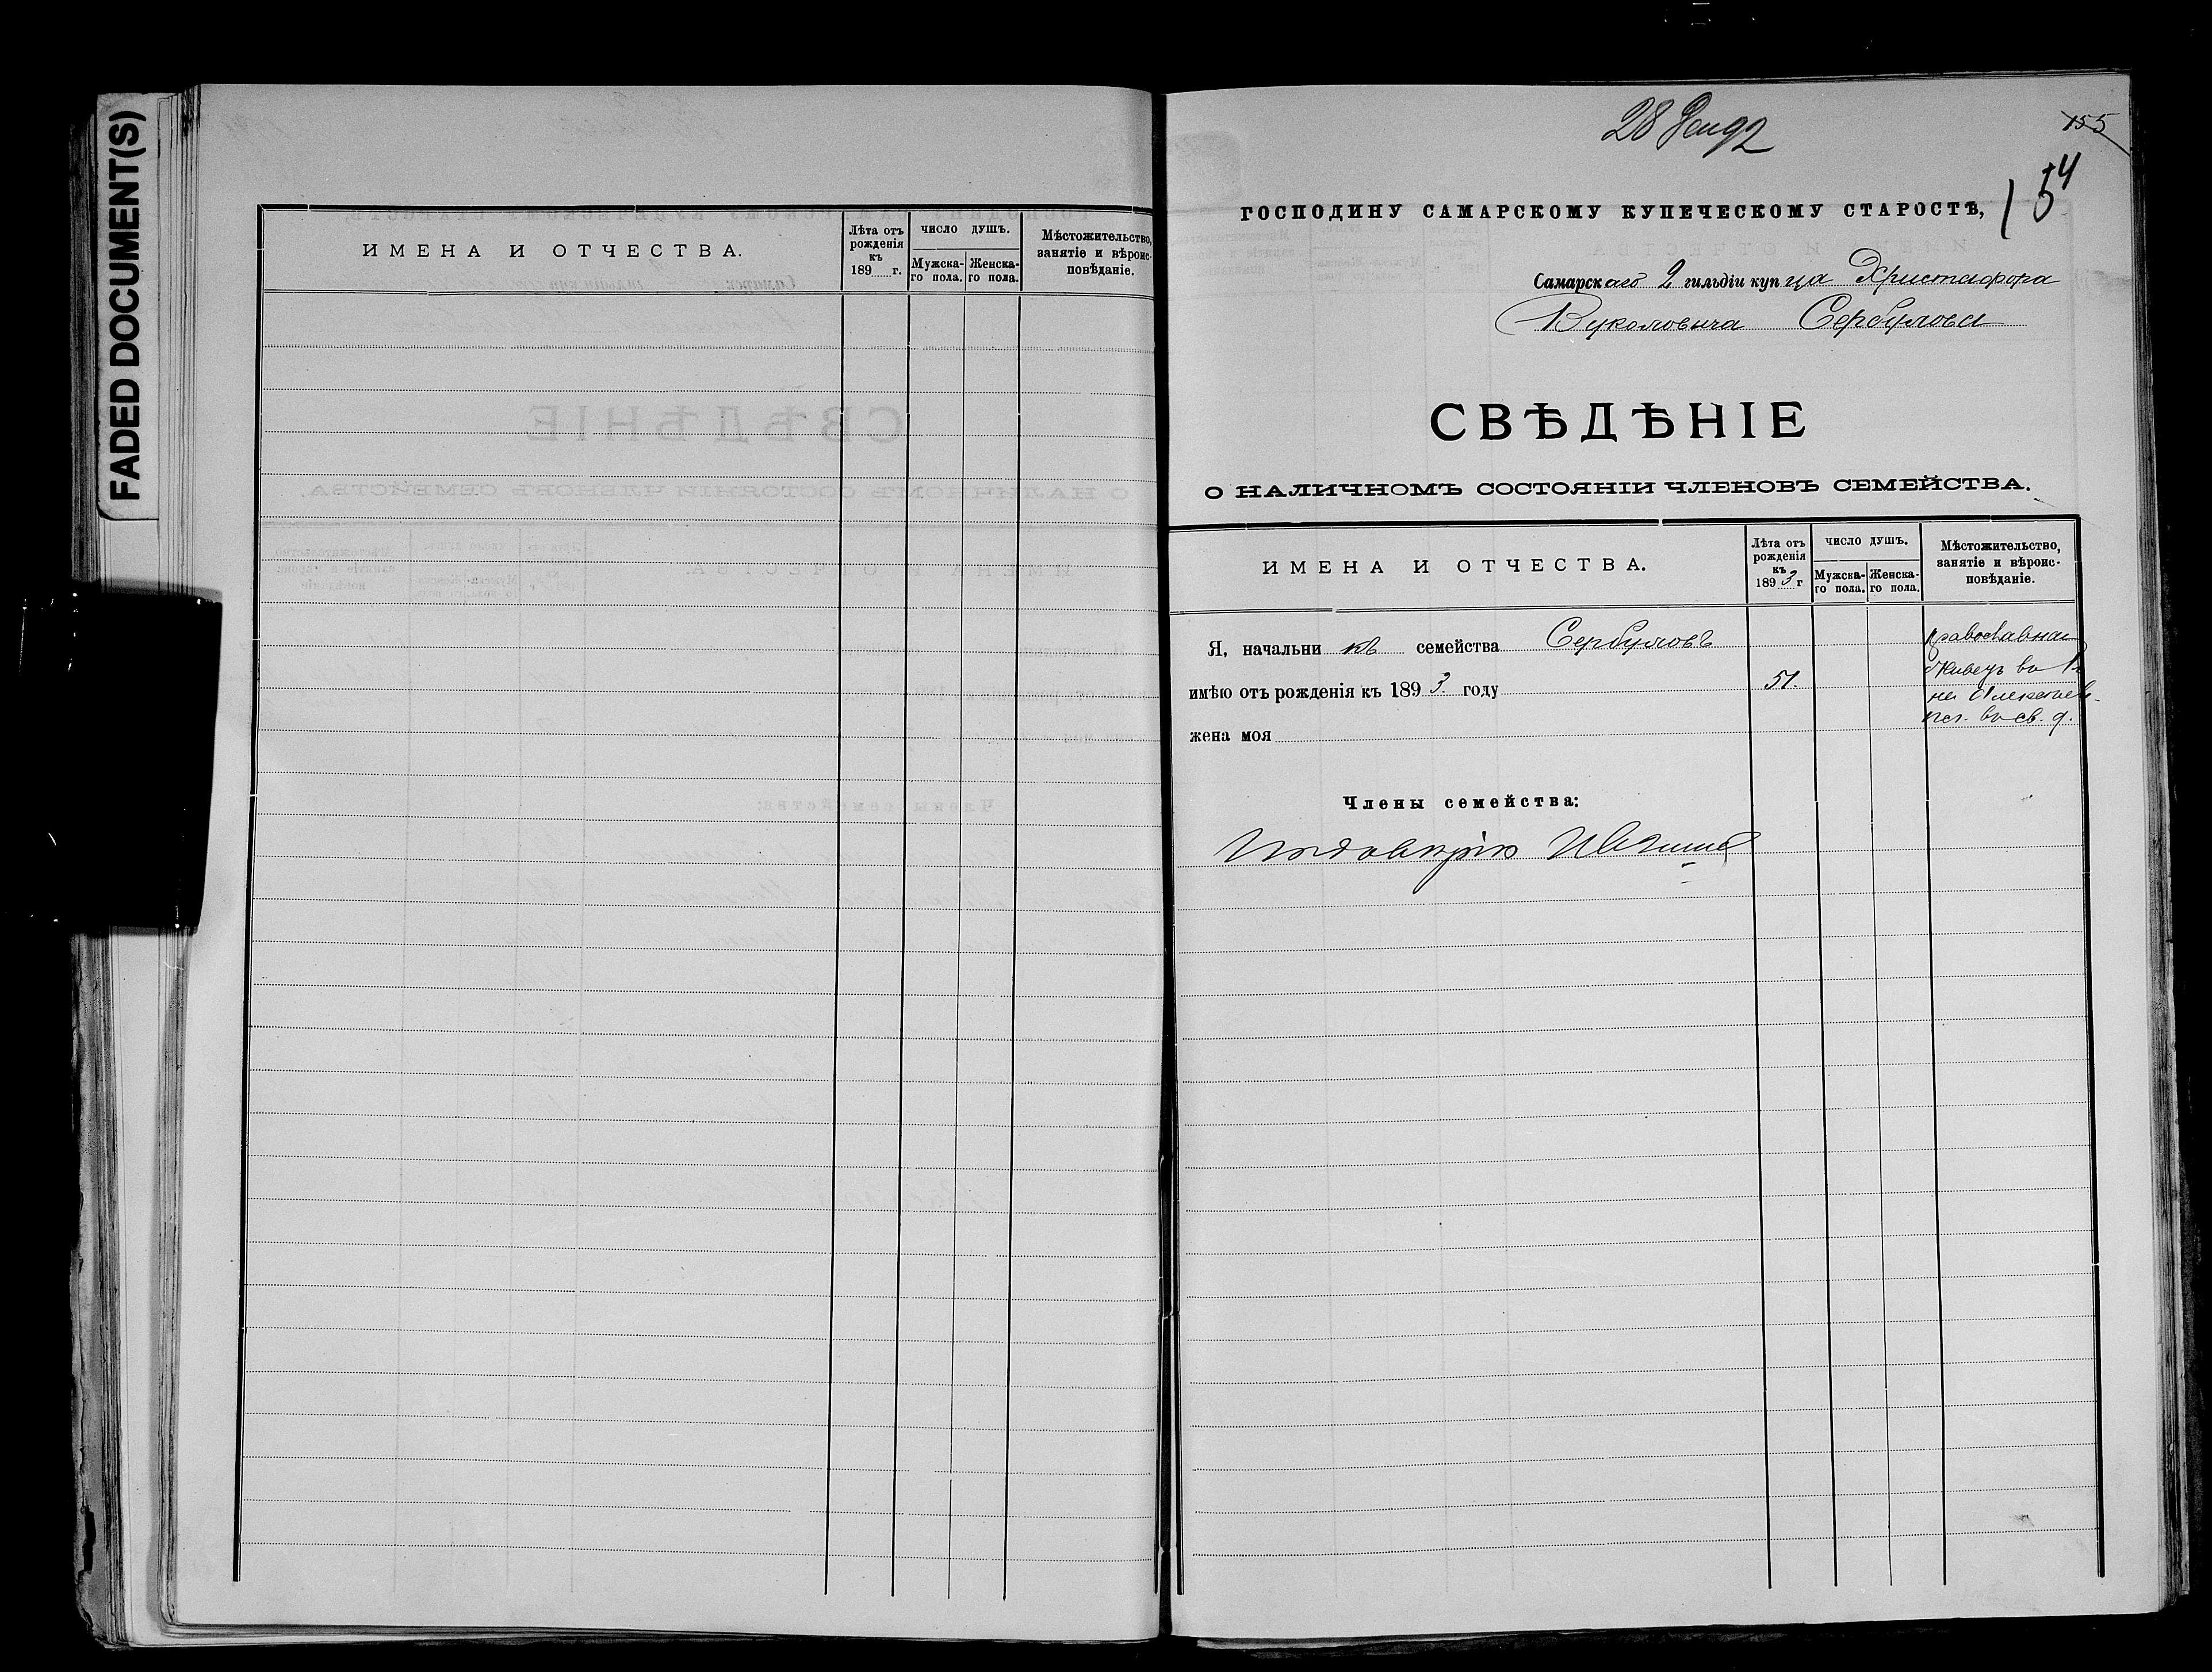 FADED DOCUMENT(S)
ИМЕНА И ОТЧЕСТВА.
Лѣта отъ рожденія къ 189 г.
ЧИСЛО ДУШЪ.
Мужска-го пола.
Женска-го пола.
Мѣстожительство, занятіе и вѣроис-повѣданіе.
28 Дек 92
155
154
ГОСПОДИНУ САМАРСКОМУ КУПЕЧЕСКОМУ СТАРОСТѢ,
Самарскаго 2 гильдіи купца Христофора
Вуколовича Сербулова
СВѢДѢНІЕ
О НАЛИЧНОМЪ СОСТОЯНІИ ЧЛЕНОВЪ СЕМЕЙСТВА.
ИМЕНА И ОТЧЕСТВА.
Лѣта отъ рожденія къ 1893 г
ЧИСЛО ДУШЪ.
Мужска-го пола.
Женска-го пола.
Мѣстожительство, занятіе и вѣроис-повѣданіе.
Я, начальникъ семейства Сербуловъ
православнаг
имѣю отъ рожденія къ 1893. году 51.
на Алексѣев
въ св. д.
жена моя
Члены семейства:
По довѣрію